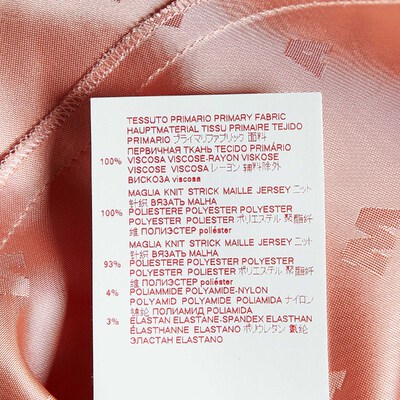 TESSUTO PRIMARIO PRIMARY FABRIC
HAUPTMATERIAL TISSU PRIMAIRE TEJIDO
PRIMARIO プライマリファブリック 面料
ПЕРВИЧНАЯ ТКАНЬ TECIDO PRIMÁRIO
100% VISCOSA VISCOSE-RAYON VISKOSE
VISCOSE VISCOSA レーヨン 辅料除外
ВИСКОЗА viscosa
MAGLIA KNIT STRICK MAILLE JERSEY ニット
针织 ВЯЗАТЬ MALHA
100% POLIESTERE POLYESTER POLYESTER
POLYESTER POLIESTER ポリエステル 聚酯纤
维 ПОЛИЭСТЕР poliéster
MAGLIA KNIT STRICK MAILLE JERSEY ニット
针织 ВЯЗАТЬ MALHA
93% POLIESTERE POLYESTER POLYESTER
POLYESTER POLIESTER ポリエステル 聚酯纤
维 ПОЛИЭСТЕР poliéster
4% POLIAMMIDE POLYAMIDE-NYLON
POLYAMID POLYAMIDE POLIAMIDA ナイロン
锦纶 ПОЛИАМИД POLIAMIDA
3% ELASTAN ELASTANE-SPANDEX ELASTHAN
ÉLASTHANNE ELASTANO ポリウレタン 氨纶
ЭЛАСТАН ELASTANO